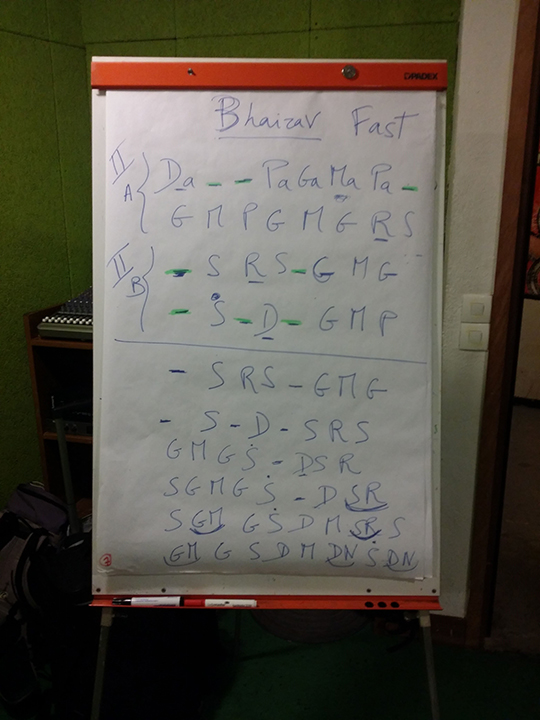 DAPADEX
Bhairav Fast
II A Da - - Pa Ga Ma Pa -
G M P G M G R S
II B - S R S - G M G
- Ṡ - D - G M P
- S R S - G M G
- S - D - S R S
G M G Ṡ - D S R
S G M G Ṡ - D SR
S GM G Ṡ D M SR S
GM G S D M DN Ṡ DN